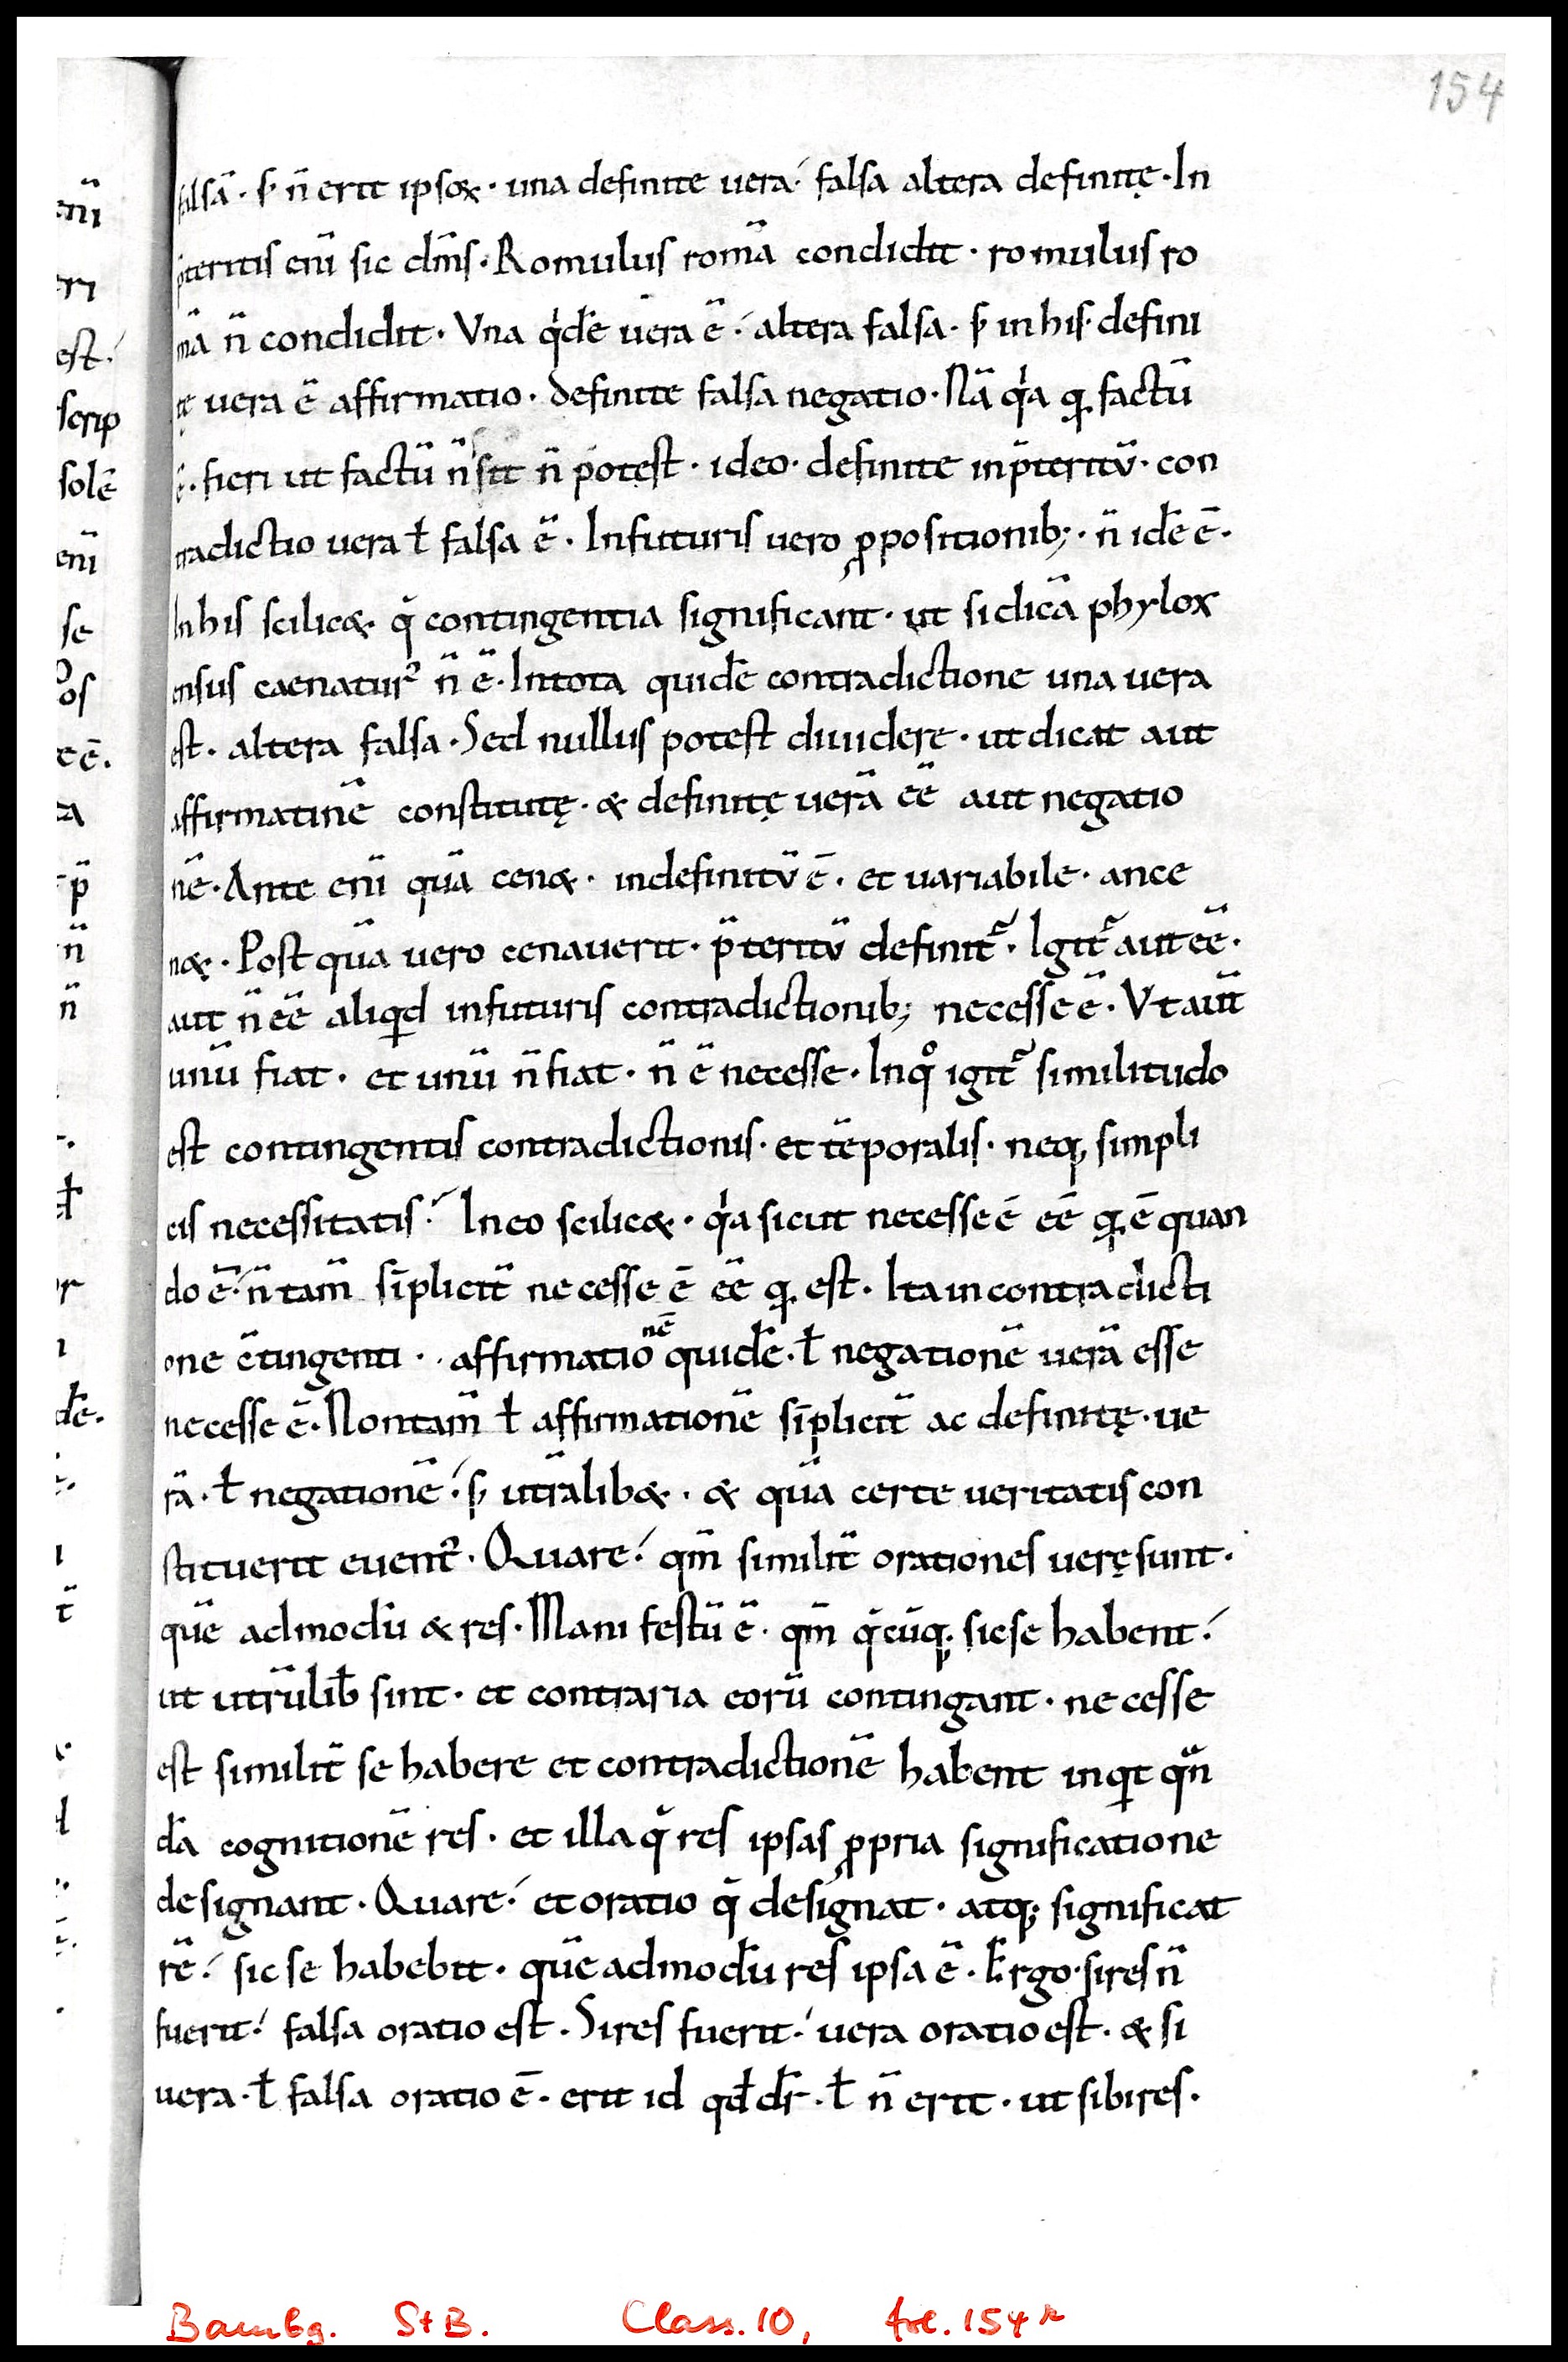 154
falsā · s; n̄ erit ipsoꝝ · una definite uera · falsa altera definitę · In
p̄teritis enī sic dm̄s · Romulus romā condidit · romulus ro
mā n̄ condidit · Vna qͥdē uera ē · altera falsa · s; in his · defini
tę uera ē affirmatio · definite falsa negatio · Nā qͥa qͥ factū
ē · fieri ut factū n̄ sit n̄ potest · ideo · definite in p̄teritū · con
tradictio uera ł falsa ē · In futuris uero ꝓpositionib; · n̄ idē ē ·
In his scilic& · q̄ contingentia significant · ut si dicā phylox
ensus caenatur᷒ n̄ ē · In tota quidē contradictione una uera
est · altera falsa · Sed nullus potest diuiderę · ut dicat aut
affirmatinē constitutę · & definitę uerā eē aut negatio
nē · Ante enī quā cen& · indefinitū ē · et uariabile · ance
n& · Post quā uero cenauerit · p̄teritū definit᷒ · Igit᷒ aut eē ·
aut n̄ eē aliqͥd in futuris contradictionib; necesse ē · Vt aūt
unū fiat · et unū n̄ fiat · n̄ ē necesse · In qͦ igit᷒ similitudo
est contingentis contradictionis · et tēporalis · neq; simpli
cis necessitatis · In eo scilic& · qͥa sicut necesse ē eē qͥ ē quan
do ē · n̄ tam̄ sīplicit̄ necesse ē eē qͥ est · Ita in contradicti
one c̄tingenti · affirmationē quidē · ł negationē uerā esse
necesse ē · Non tam̄ ł affirmationē sīplicit̄ ac definitę · ue
rā · ł negationē · s; utrālib& · & quā certe ueritatis con
stituerit euent᷒ · Quare · qm̄ similit̄ orationes uerę sunt ·
quē admodū & res · Mani festū ē · qm̄ q̄cūq; sic se habent ·
ut utrūlib̄ sint · et contraria eorū contingant · necesse
est similit̄ se habere et contradictionē habent inqͥt qᷓn
dā cognitionē res · et illa q̄ res ipsas ꝓpria significatione
designant · Quare · et oratio q̄ designat · atq; significat
rē · sic se habebit · quē admodū res ipsa ē · Ergo · si res n̄
fuerit · falsa oratio est · Si res fuerit · uera oratio est · & si
uera · ł falsa oratio ē · erit id qđ dr̄ · ł n̄ erit · ut sibi res ·
Bambg. StB. Class. 10, fol. 154r